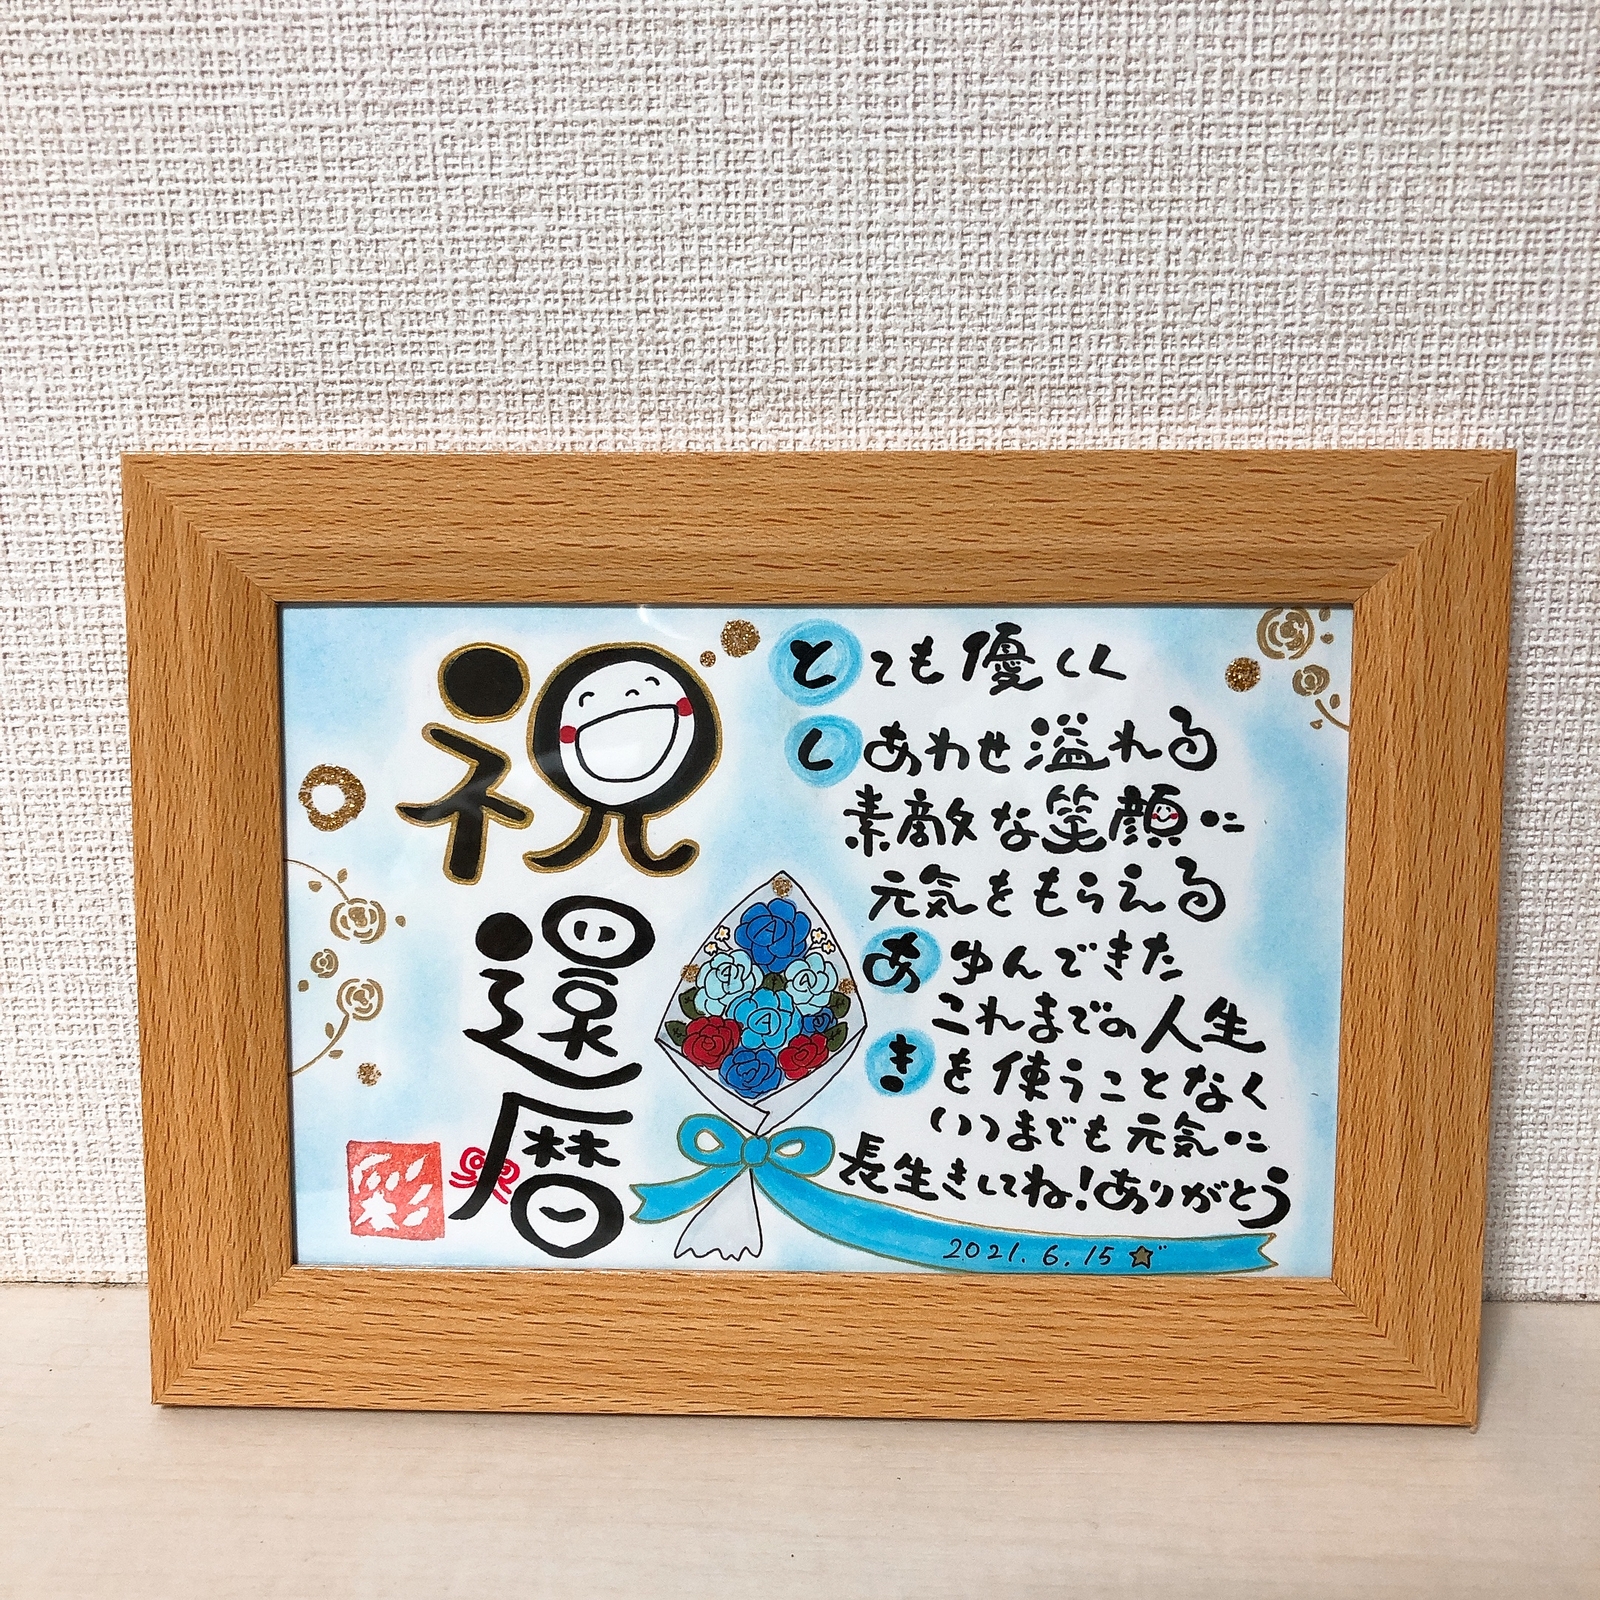 祝
還暦
とても優しく
しあわせ溢れる
素敵な笑顔に
元気をもらえる
あゆんできた
これまでの人生
きを使うことなく
いつまでも元気に
長生きしてね!ありがとう
2021.6.15
彩